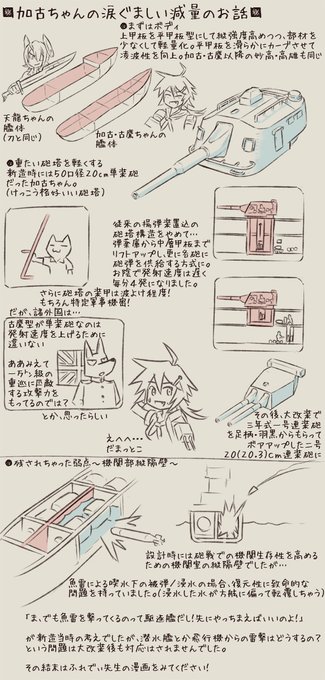 加古ちゃんの涙ぐましい減量のお話
●まずはボディ
上甲板を平甲板型にして縦強度高めつつ、部材を
少なくして軽量化。平甲板を滑らかにカーブさせて
凌波性を向上。加古・古鷹以降の妙高・高雄も同じ
天龍ちゃんの
艦体
(刀と同じ)
加古・古鷹ちゃんの
艦体
●重たい砲塔を軽くする
新造時には50口径20cm単装砲
だった加古ちゃん。
(けっこう格好いい砲塔)
従来の揚弾薬置込の
砲塔構造をやめて…
弾薬庫から中層甲板まで
リフトアップし、更に各砲に
砲弾を供給する方式に。
お陰で発射速度は遅く
毎分4発になりました。
さらに砲塔の装甲は波よけ程度!
もちろん特定軍事機密!
だが、諸外国は…
古鷹型が単装砲なのは
発射速度を上げるために
違いない
ああみえて
一万㌧級の
重巡に匹敵
する攻撃力を
もってるのでは?
とか、思ったらしい
えへへ…
だまっとこ
その後、大改装で
三年式一号連装砲
を足柄・羽黒からもらって
ボアアップした二号
20(20.3)cm連装砲に
●残されちゃった弱点～機関部縦隔壁～
設計時には砲戦での機関生存性を高める
ための機関室縦隔壁でしたが…
魚雷による喫水下の被弾/浸水の場合、復元性に致命的な
問題を持っていました。(浸水した水が片舷に偏って転覆しちゃう)
「ま、でも魚雷を撃ってくるのって駆逐艦だし!先にやっちまえばいいのよ!」
が新造当時の考えでしたが、潜水艦とか飛行機からの雷撃はどうするの?
という問題は大改装後も対応はされませんでした。
その結末はふれでぃ先生の漫画をみてください!